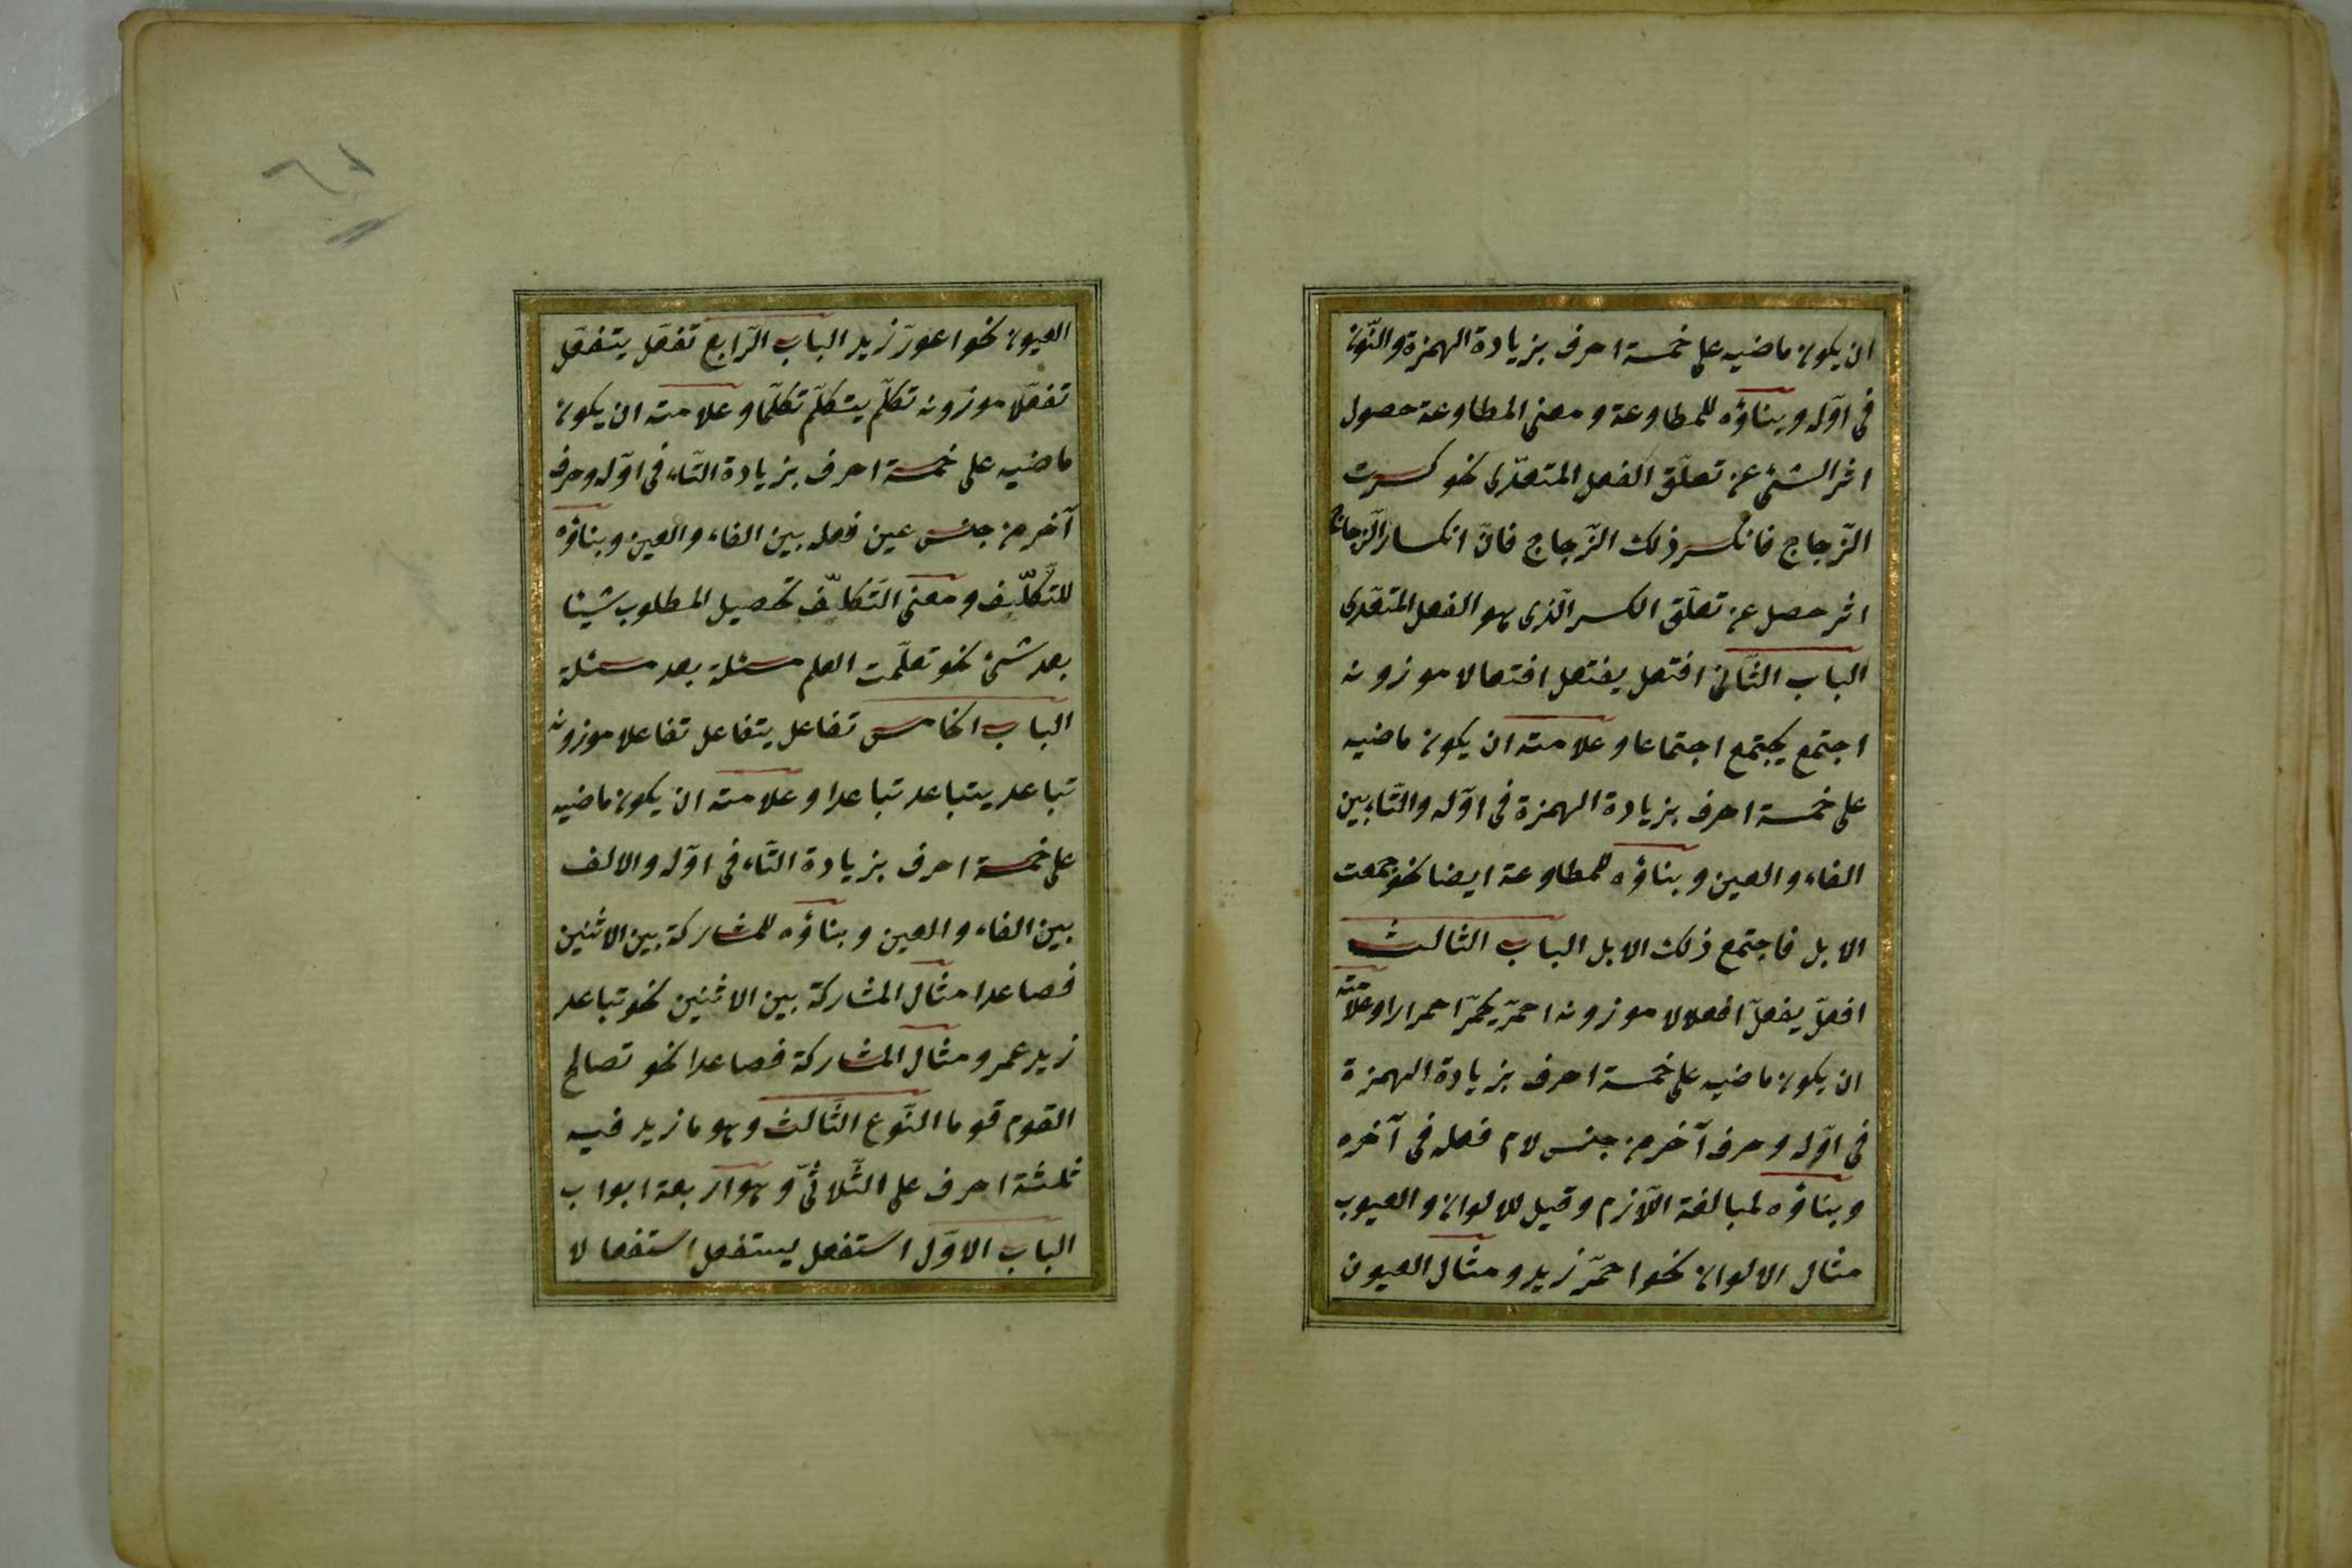 ان يكون ماضيه على خمسة احرف بزيادة الهمزة والنّون
فى اوّله وبناؤه للمطاوعة ومعنى المطاوعة حصول
اثر الشئ عن تعلّق الفعل المتعدّى نحو كسرت
الزّجاج فانكسر ذلك الزّجاج فانّ انكسار الزّجاج
اثر حصل عن تعلّق الكسر الّذى هو الفعل المتعدّى
الباب الثّانى افتعل يفتعل افتعالا موزونه
اجتمع يجتمع اجتماعا وعلامته ان يكون ماضيه
على خمسة احرف بزيادة الهمزة فى اوّله والتّاء بين
الفاء والعين وبناؤه للمطاوعة ايضا نحو جمعت
الابل فاجتمع ذلك الابل الباب الثالث
افعلّ يفعلّ افعلالا موزونه احمرّ يحمرّ احمرارا وعلامته
ان يكون ماضيه على خمسة احرف بزيادة الهمزة
فى اوّله وحرف آخر من جنس لام فعله فى آخره
وبناؤه لمبالغة اللّازم وقيل للالوان والعيوب
مثال الالوان نحو احمرّ زيد ومثال العيون
العيون نحو اعورّ زيد الباب الرّابع تفعّل يتفعّل
تفعّلا موزونه تكلّم يتكلّم تكلّما وعلامته ان يكون
ماضيه على خمسة احرف بزيادة التّاء فى اوّله وحرف
آخر من جنس عين فعله بين الفاء والعين وبناؤه
للتّكلّف ومعنى التّكلّف تحصيل المطلوب شيئا
بعد شئ نحو تعلّمت العلم مسئلة بعد مسئلة
الباب الخامس تفاعل يتفاعل تفاعلا موزونه
تباعد يتباعد تباعدا وعلامته ان يكون ماضيه
على خمسة احرف بزيادة التّاء فى اوّله والالف
بين الفاء والعين وبناؤه للمشاركة بين الاثنين
فصاعدا مثال المشاركة بين الاثنين نحو تباعد
زيد عمرو مثال المشاركة فصاعدا نحو تصالح
القوم قوما النّوع الثّالث وهو ما زيد فيه
ثلثة احرف على الثّلاثىّ وهو اربعة ابواب
الباب الاوّل استفعل يستفعل استفعالا